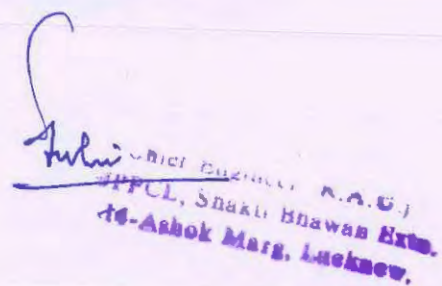 Chief Engineer R.A.U.)
UPPCL, Shakti Bhawan Extn.
14-Ashok Marg, Lucknow.